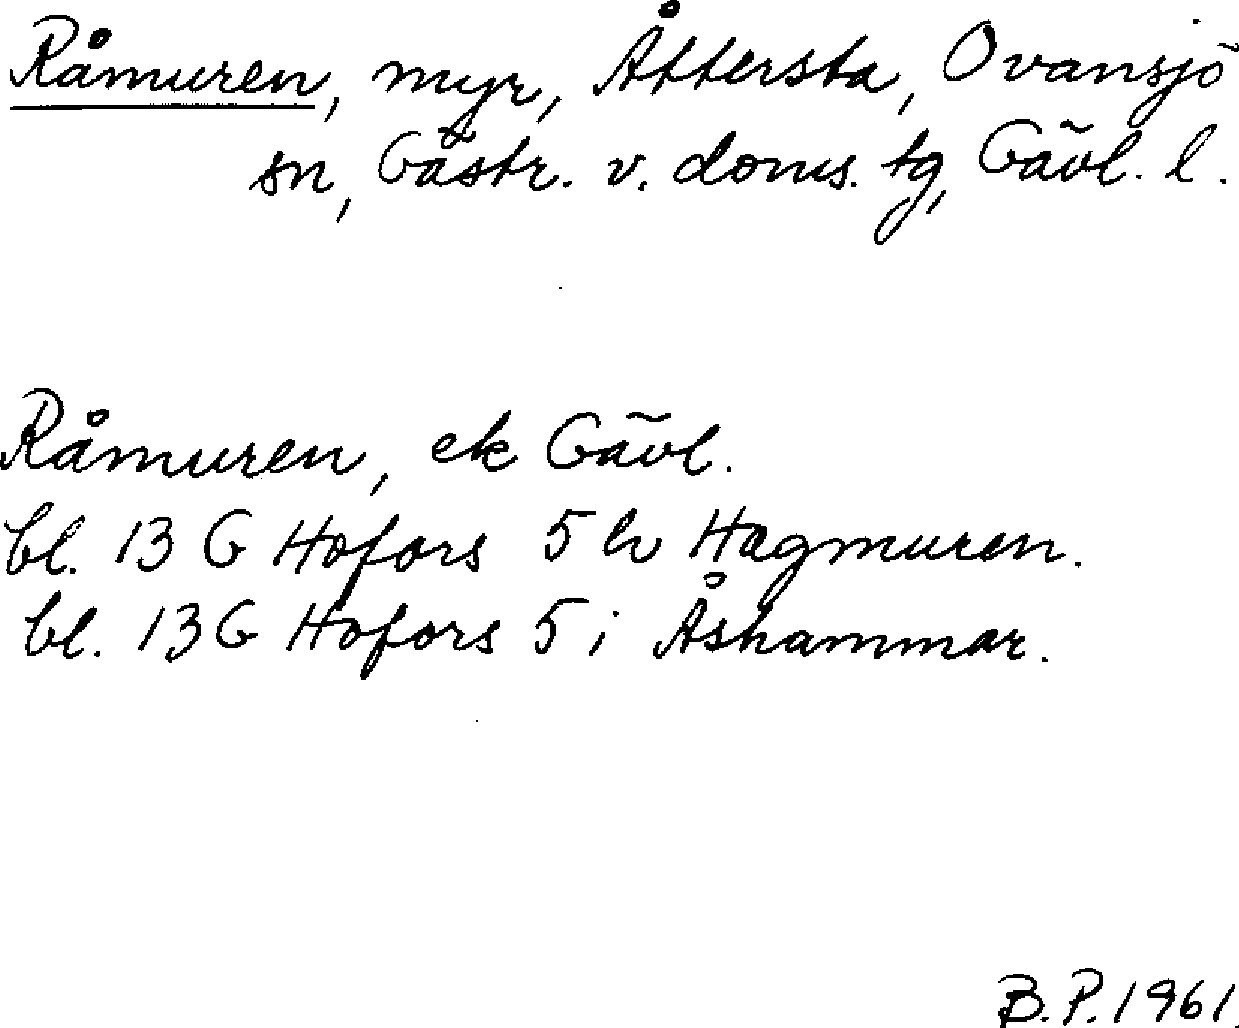 Råmuren, myr, Åttersta, Ovansjö
sn, Gästr. v. doms. tg, Gävl. l.
Råmuren, ek Gävl.
bl. 13 G Hofors 5 h Hagmuren.
bl. 13 G Hofors 5 i Åshammar.
B.P. 1961.